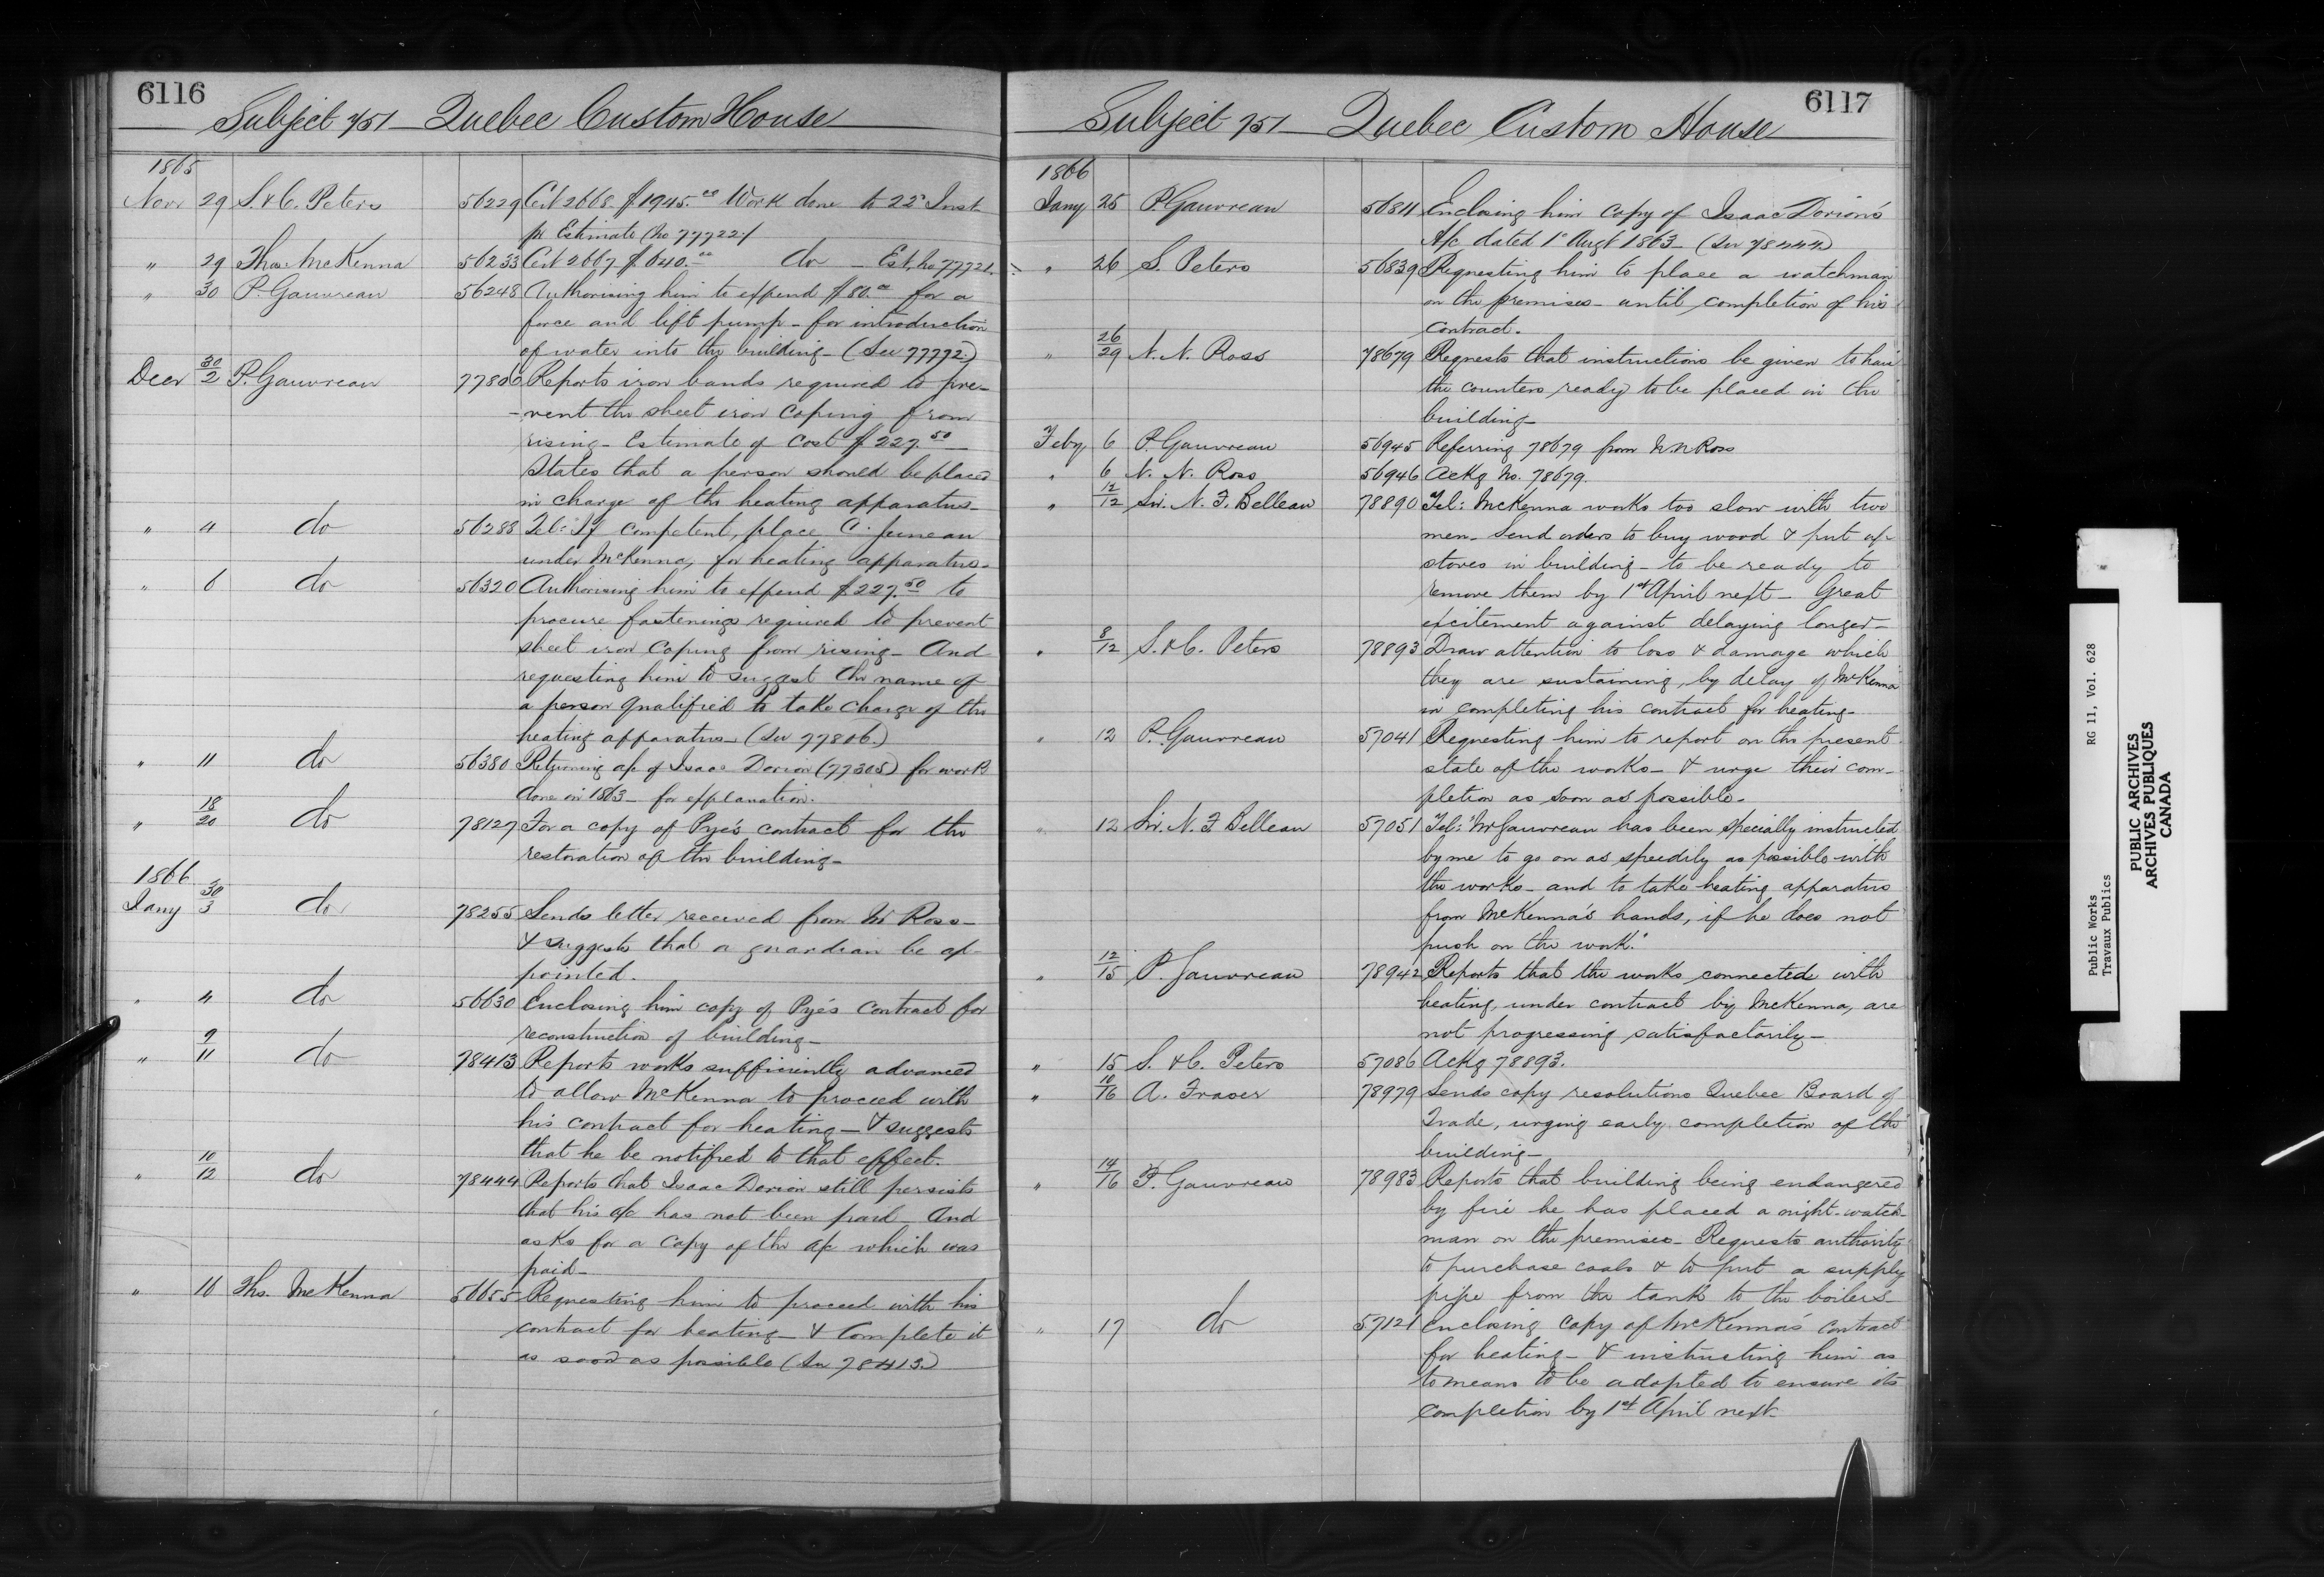 6116
Subject 751 Quebec Custom House
1865
Novr 29 S. & C. Peters 56229 Cert 2668 $1945.00 Work done to 22d Inst
pr Estimate (No 77722)
" 29 Thos. McKenna 56233 Cert 2667 $640.00 do Est. No 77721
" 30 P. Gauvreau 56248 Authorising him to expend $80.00 for a
force and lift pump - for introduction
of water into the building - (See 77772.)
Decr 30/2 P. Gauvreau 77806 Reports iron bands required to pre-
-vent the sheet iron coping from
rising - Estimate of Cost $227.50
States that a person should be placed
in charge of the heating apparatus -
" 4 do 56288 Tel: If competent, place C. Juneau
under McKenna, for heating apparatus.
" 6 do 56320 Authorising him to expend $227.50 to
procure fastenings required to prevent
sheet iron coping from rising - And
requesting him to suggest the name of
a person qualified to take charge of the
heating apparatus - (See 77806.)
" 11 do 56380 Returning a/c of Isaac Dorion (77305) for work
done in 1863 - for explanation.
" 18/20 do 78127 For a copy of Pye's contract for the
restoration of the building -
1866
Jany 30/3 do 78255 Sends letter received from Mr Ross -
& suggests that a guardian be ap-
pointed.
" 4 do 56630 Enclosing him copy of Pye's contract for
reconstruction of building -
" 9/11 do 78413 Reports works sufficiently advanced
to allow McKenna to proceed with
his contract for heating - & suggests
that he be notified to that effect.
" 10/12 do 78444 Reports that Isaac Dorion still persists
that his a/c has not been paid - And
asks for a copy of the a/c which was
paid -
" 16 Ths. McKenna 56655 Requesting him to proceed with his
contract for heating - & Complete it
as soon as possible (See 78413.)
6117
Subject 751 - Quebec Custom House
1866
Jany 25 P. Gauvreau 56811 Enclosing him copy of Isaac Dorion's
A/c dated 1st Augt 1863 - (See 78444.)
" 26 S. Peters 56839 Requesting him to place a watchman
on the premises - until completion of his
contract.
" 26/29 N. N. Ross 78679 Requests that instructions be given to have
the counters ready to be placed in the
building -
Feby 6 P. Gauvreau 56945 Referring 78679 from N. N Ross
" 6 N. N. Ross 56946 Ackg No. 78679.
" 12/12 Sir. N. F. Belleau 78890 Tel: McKenna works too slow with two
men - Send orders to buy wood & put up
stoves in building - to be ready to
remove them by 1st April next - Great
excitement against delaying longer -
" 8/12 S. & C. Peters 78893 Draw attention to loss & damage which
they are sustaining, by delay of McKenna
in completing his contract for heating -
" 12 P. Gauvreau 57041 Requesting him to report on the present
state of the works - & urge their com-
pletion as soon as possible -
" 12 Sir. N. F Belleau 57051 Tel: "Mr Gauvreau has been specially instructed
by me to go on as speedily as possible with
the works - and to take heating apparatus
from McKenna's hands, if he does not
push on the work."
" 12/15 P. Gauvreau 78942 Reports that the works connected with
heating, under contract by McKenna, are
not progressing satisfactorily -
" 15 S. & C. Peters 57086 Ackg 78893.
" 10/16 A. Fraser 78979 Sends copy resolutions Quebec Board of
Trade, urging early completion of the
building -
" 14/16 P. Gauvreau 78983 Reports that building being endangered
by fire he has placed a night-watch-
man on the premises - Requests authority
to purchase coals & to put a supply
pipe from the tank to the boilers -
" 17 do 57121 Enclosing copy of McKenna's contract
for heating - & instructing him as
to means to be adopted to ensure its
completion by 1st April next -
Public Works RG 11, Vol. 628
Travaux Publics
PUBLIC ARCHIVES
ARCHIVES PUBLIQUES
CANADA